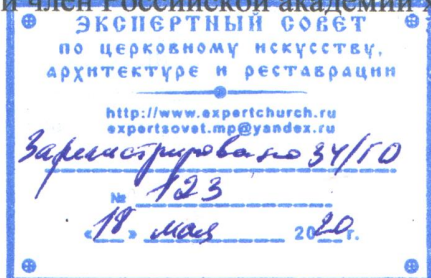 и член Российской академии х
ЭКСПЕРТНЫЙ СОВЕТ
ПО ЦЕРКОВНОМУ ИСКУССТВУ,
АРХИТЕКТУРЕ И РЕСТАВРАЦИИ
http://www.expertchurch.ru
expertsovet.mp@yandex.ru
Зарегистрировано ЗЧ/ГО
№ 123
«18» мая 2020 г.